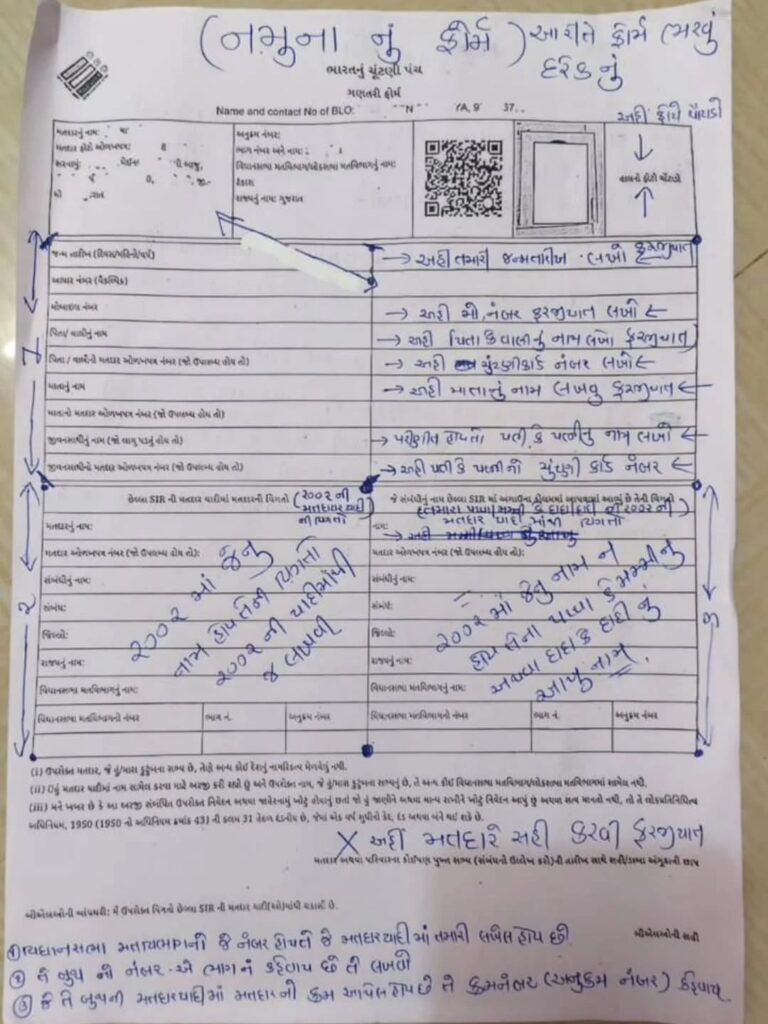 (નમુના નું ફોર્મ) આ રીતે ફોર્મ ભરવું
દરેક નું
ભારતનું ચૂંટણી પંચ
ગણતરી ફોર્મ
Name and contact No of BLO:
અહીં ફોટો ચોંટાડો
મતદારનું નામ:
મતદાર ફોટો ઓળખપત્ર:
સરનામું:
અનુક્રમ નંબર:
ભાગ નંબર અને નામ:
વિધાનસભા મતવિભાગ/લોકસભા મતવિભાગનું નામ:
રાજ્યનું નામ: ગુજરાત
હાલનો ફોટો ચોંટાડો
જન્મ તારીખ (દિવસ/મહિનો/વર્ષ) → અહીં તમારી જન્મતારીખ લખો ફરજીયાત
આધાર નંબર (વૈકલ્પિક)
મોબાઇલ નંબર → અહીં મો. નંબર ફરજીયાત લખો ←
પિતા/ વાલીનું નામ → અહીં પિતા કે વાલીનું નામ લખો ફરજીયાત
પિતા / વાલીનો મતદાર ઓળખપત્ર નંબર (જો ઉપલબ્ધ હોય તો) → અહીં ચુંટણીકાર્ડ નંબર લખો ←
માતાનું નામ → અહીં માતાનું નામ લખવુ ફરજીયાત ←
માતાનો મતદાર ઓળખપત્ર નંબર (જો ઉપલબ્ધ હોય તો)
જીવનસાથીનું નામ (જો લાગુ પડતું હોય તો) → પરણીત હોય તો પતી કે પત્નીનુ નામ લખો ←
જીવનસાથીનો મતદાર ઓળખપત્ર નંબર (જો ઉપલબ્ધ હોય તો) → અહીં પતી કે પત્ની નો ચુંટણી કાર્ડ નંબર ←
૧
છેલ્લા SIR ની મતદાર યાદીમાં મતદારની વિગતો (૨૦૦૨ ની
મતદારયાદી
ની વિગતો)
જે સંબંધીનું નામ છેલ્લા SIR માં અગાઉના કોલમમાં આપવામાં આવ્યું છે તેની વિગતો
(તમારા પપ્પા મમ્મી કે દાદા દાદી ની ૨૦૦૨ ની
મતદાર યાદી માંથી વિગતો
મતદારનું નામ:
મતદાર ઓળખપત્ર નંબર (જો ઉપલબ્ધ હોય તો):
સંબંધીનું નામ:
સંબંધ:
જિલ્લો:
રાજ્યનું નામ:
વિધાનસભા મતવિભાગનું નામ:
૨૦૦૨ માં જેનુ
નામ હોય તેની વિગતો
૨૦૦૨ ની યાદીમાંથી
જ લખવી
નામ:
મતદાર ઓળખપત્ર નંબર (જો ઉપલબ્ધ હોય તો):
સંબંધીનું નામ:
સંબંધ:
જિલ્લો:
રાજ્યનું નામ:
વિધાનસભા મતવિભાગનું નામ:
૨૦૦૨ માં જેનુ નામ ન
હોય તેના પપ્પા કે મમ્મીનું
અથવા દાદા કે દાદી નું
આખુ નામ.
૨
૩
વિધાનસભા મતવિભાગનો નંબર ભાગ નં. અનુક્રમ નંબર વિધાનસભા મતવિભાગનો નંબર ભાગ નં. અનુક્રમ નંબર
(i) ઉપરોક્ત મતદાર, જે હું/મારા કુટુંબના સભ્ય છે, તેણે અન્ય કોઈ દેશનું નાગરિકત્વ મેળવેલું નથી.
(ii) હું મતદાર યાદીમાં નામ સામેલ કરવા માટે અરજી કરી રહ્યો છું અને ઉપરોક્ત નામ, જે હું/મારા કુટુંબના સભ્યનું છે, તે અન્ય કોઈ વિધાનસભા મતવિભાગ/લોકસભા મતવિભાગમાં સામેલ નથી.
(iii) મને ખબર છે કે આ અરજી સંબંધિત ઉપરોક્ત નિવેદન અથવા જાહેરનામું ખોટું હોવાનું છતાં જો હું જાણીને અથવા માન્ય રાખીને ખોટું નિવેદન આપું છું અથવા સત્ય માનતો નથી, તો તે લોકપ્રતિનિધિત્વ
અધિનિયમ, 1950 (1950 નો અધિનિયમ ક્રમાંક 43) ની કલમ 31 હેઠળ દંડનીય છે, જેમાં એક વર્ષ સુધીની કેદ, દંડ અથવા બંને થઈ શકે છે.
X અહીં મતદારે સહી કરવી ફરજીયાત
મતદાર અથવા પરિવારના કોઈપણ પુખ્ત સભ્ય (સંબંધનો ઉલ્લેખ કરો)ની તારીખ સાથે સહી/ડાબા અંગૂઠાની છાપ
બીએલઓની બાંયધરી: મેં ઉપરોક્ત વિગતો છેલ્લા SIR ની મતદાર યાદી(ઓ)માંથી ચકાસી છે.
બીએલઓની સહી
① વિધાનસભા મતવિભાગનો જે નંબર હોય તે જે મતદારયાદી માં તમારી લખેલ હોય છે.
② તે બુથ નો નંબર - એ ભાગ નં કહેવાય છે તે લખવો
③ જે તે બુથની મતદારયાદીમાં મતદારનો ક્રમ આપેલ હોય છે તે ક્રમનંબર (અનુક્રમ નંબર) કહેવાય.